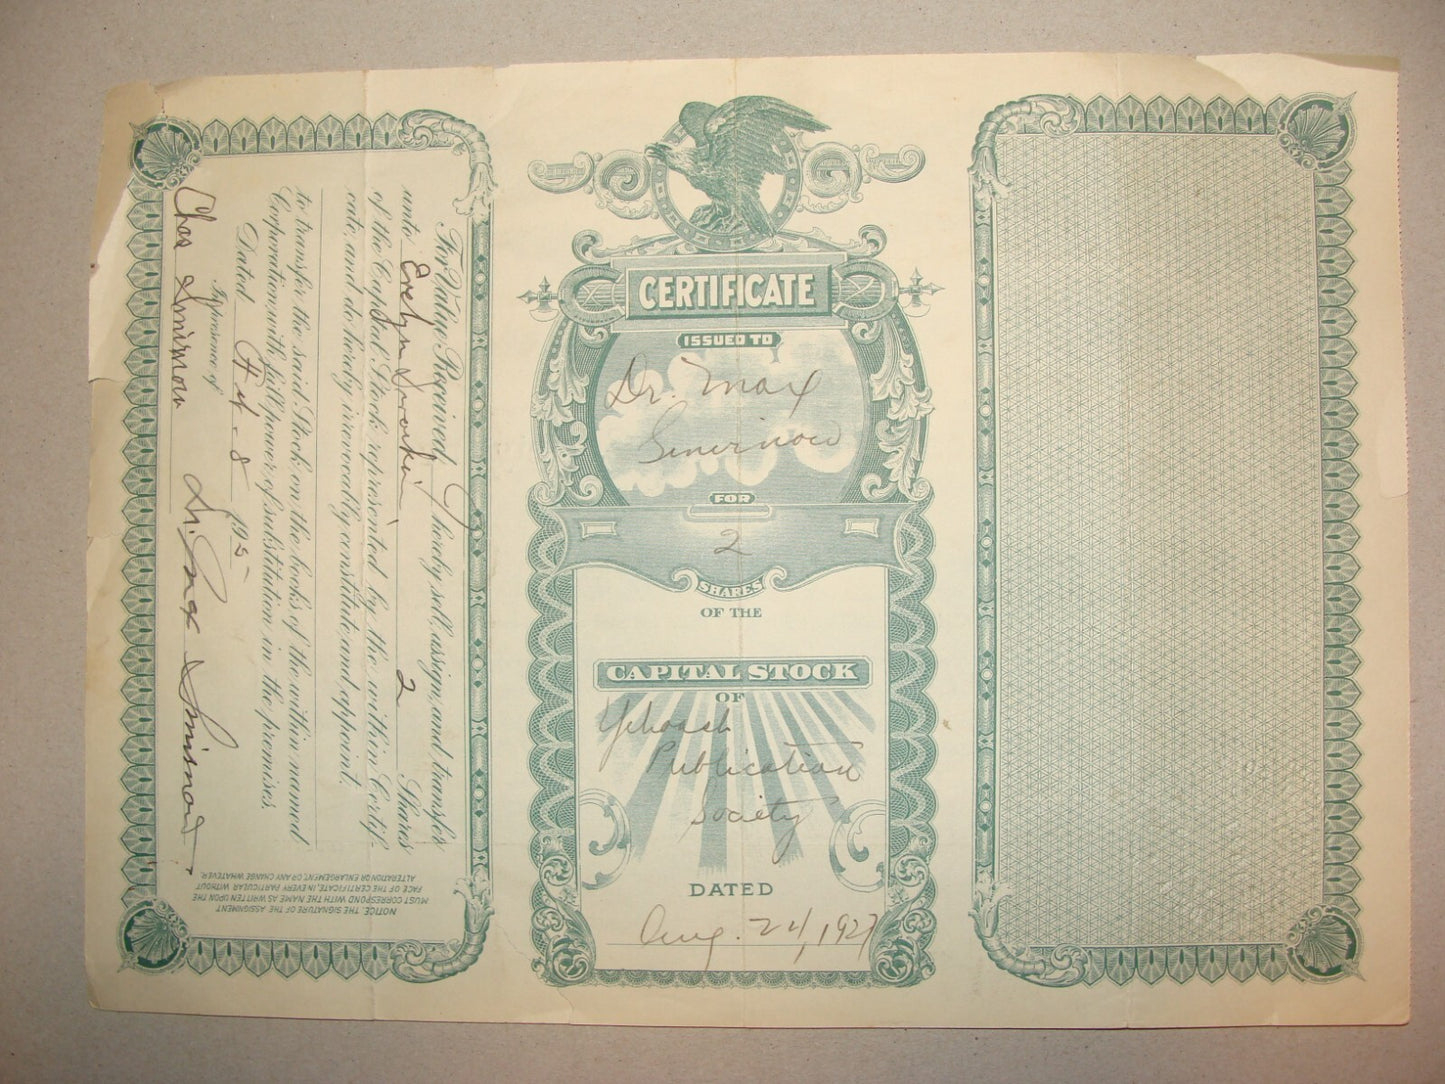 For Value Received, I hereby sell, assign, and transfer
unto Evelyn 2 Shares
of the Capital Stock represented by the within Certif-
icate, and do hereby irrevocably constitute and appoint
to transfer the said Stock on the books of the within named
Corporation with full power of substitution in the premises.
Dated 8 19
In presence of
Chas Smirnow Dr. Max Smirnow
NOTICE. THE SIGNATURE OF THE ASSIGNMENT
MUST CORRESPOND WITH THE NAME AS WRITTEN UPON THE
FACE OF THE CERTIFICATE, IN EVERY PARTICULAR WITHOUT
ALTERATION OR ENLARGEMENT, OR ANY CHANGE WHATEVER.
CERTIFICATE
ISSUED TO
Dr. Max
Smirnow
FOR
2
SHARES
OF THE
CAPITAL STOCK
OF
Yehoash
Publication
Society
DATED
Aug. 24, 1927